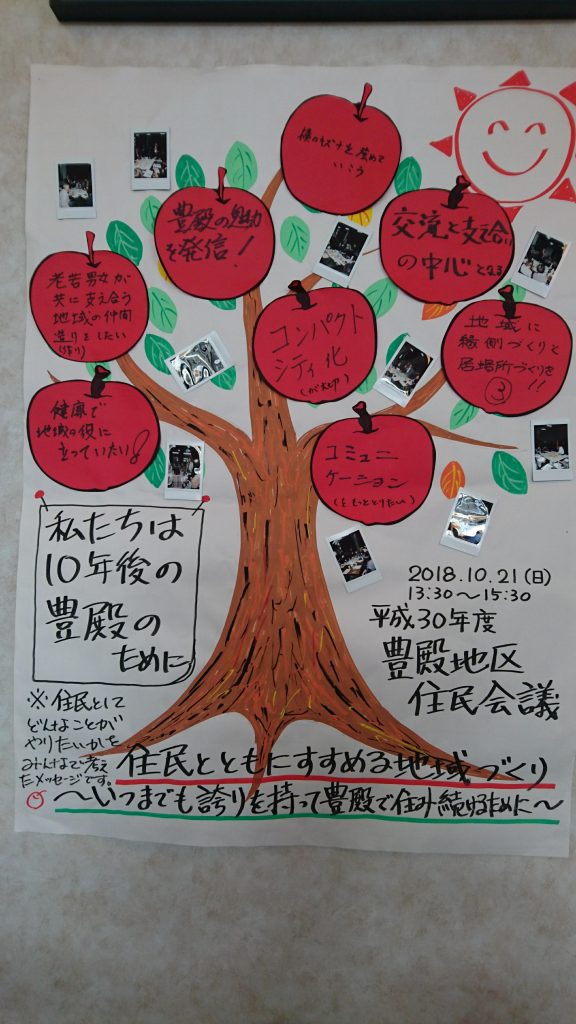 横のキズナを強めて
いこう
豊殿の魅力
を発信!
交流と支え合い
の中心となる
老若男女が
共に支え合う
地域の仲間
造りをしたい
(作り)
コンパクト
シティ化
(が大切)
地域に
縁側づくりと
居場所づくりを
!!
③
健康で
地域の役に
立っていたい!
コミュニ
ケーション
(をもっととりたい)
私たちは
10年後の
豊殿の
ために
2018.10.21(日)
13:30~15:30
平成30年度
豊殿地区
住民会議
※住民として
どんなことが
やりたいかを
みんなで考え
たメッセージです。
住民とともにすすめる地域づくり
~いつまでも誇りを持って豊殿で住み続けるために~